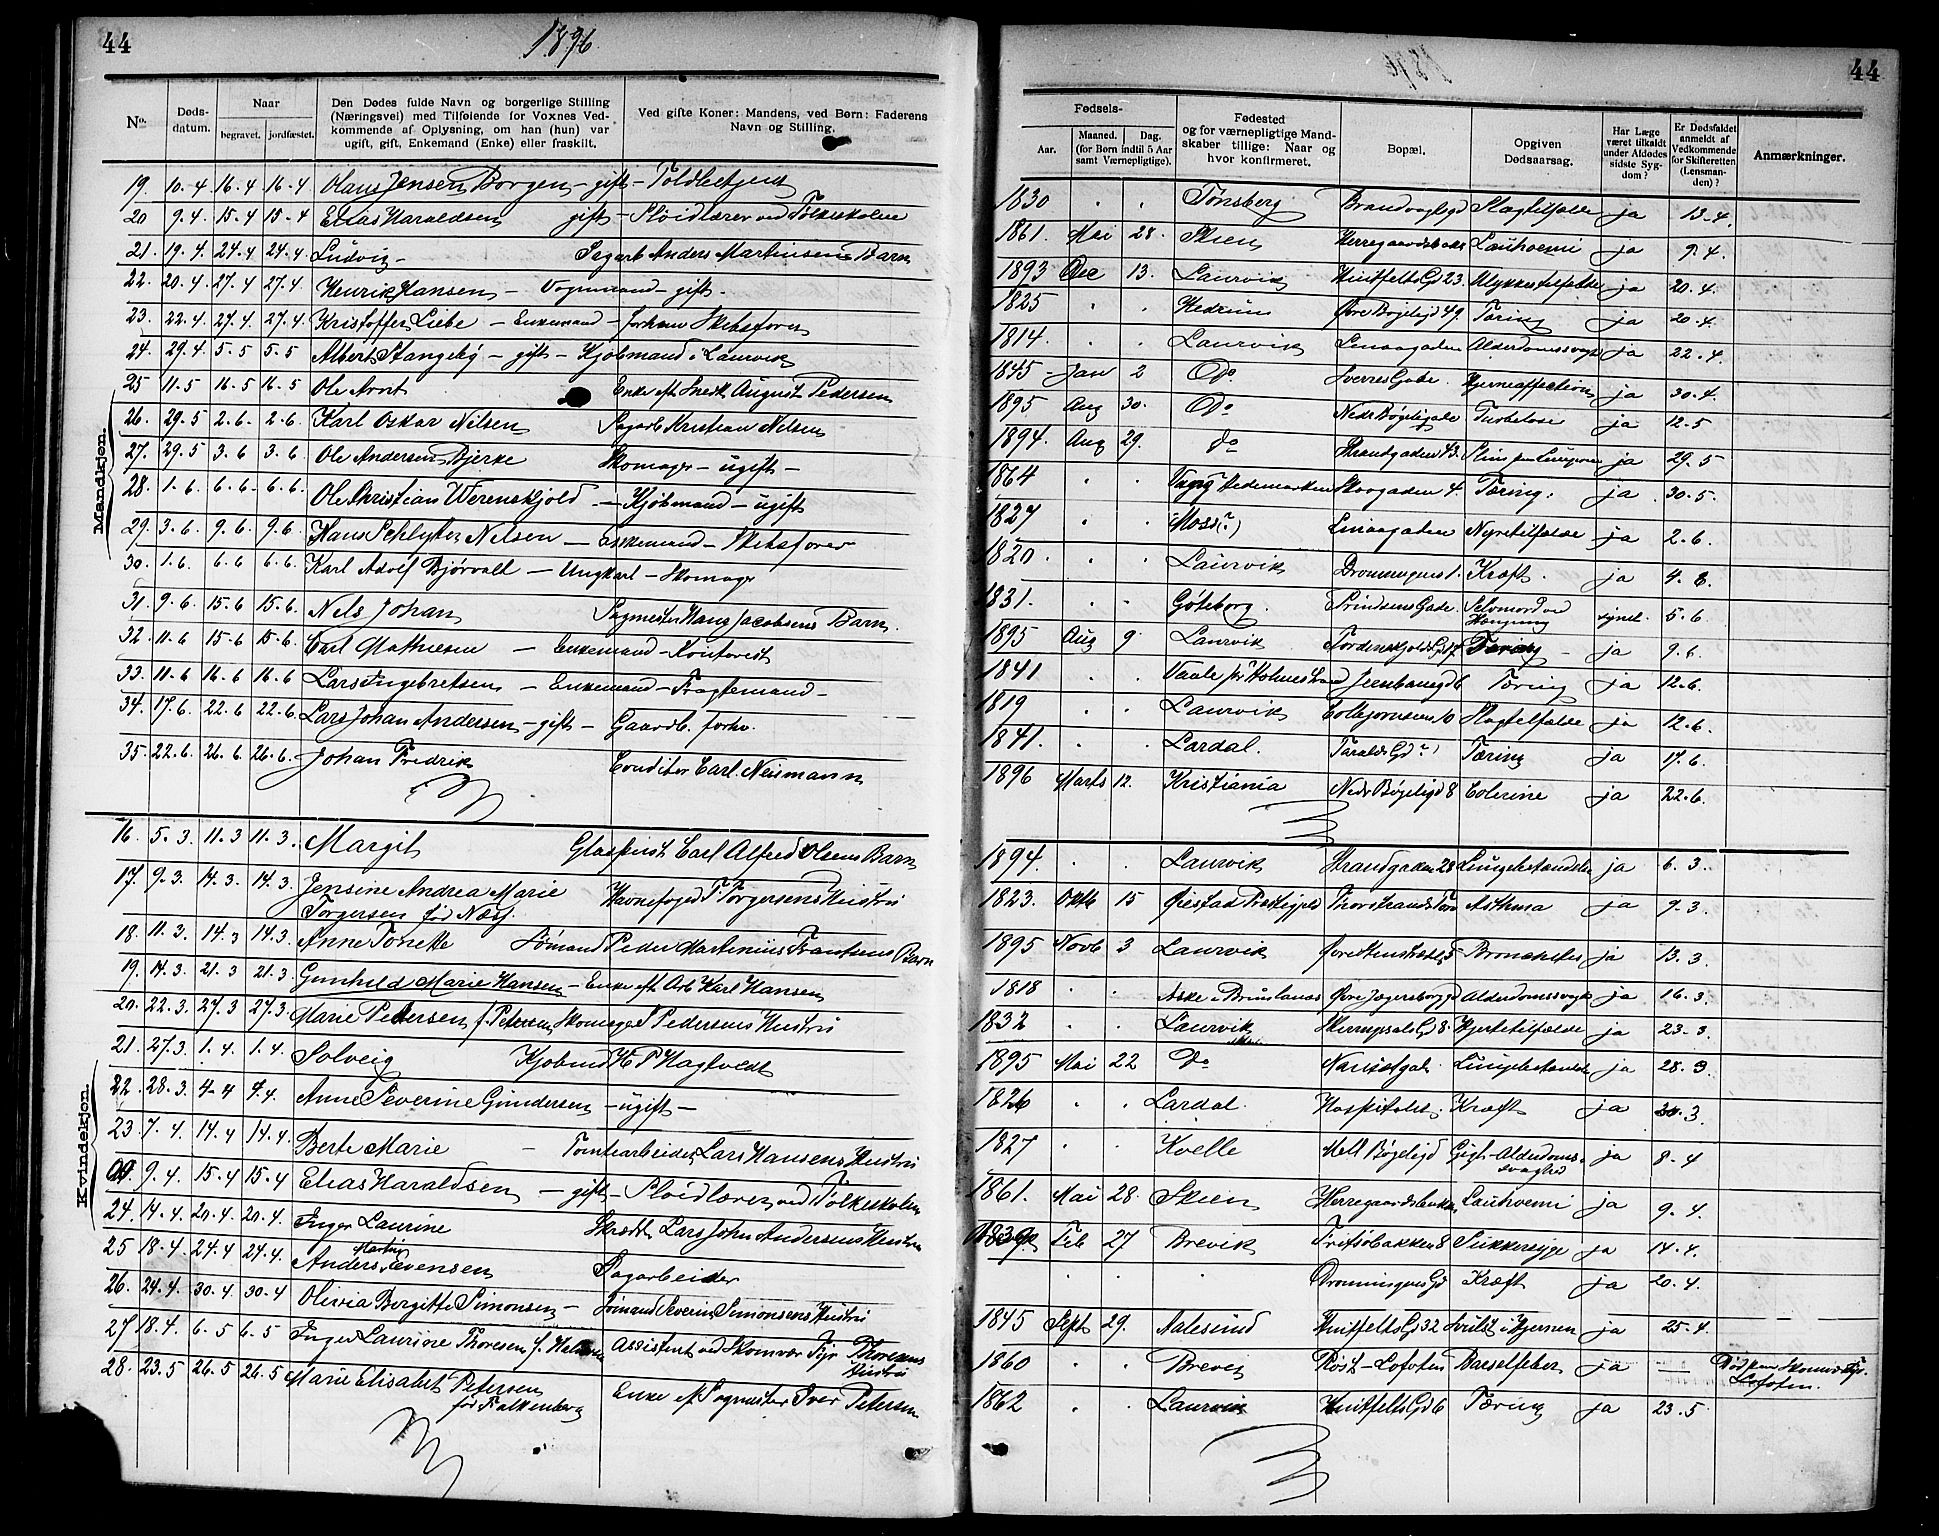 44
1896.
No.
Døds-
datum.
Naar
begravet.
jordfæstet.
Den Dødes fulde Navn og borgerlige Stilling
(Næringsvei) med Tilføiende for Voxnes Ved-
kommende af Oplysning, om han (hun) var
ugift, gift, Enkemand (Enke) eller fraskilt.
Ved gifte Koner: Mandens, ved Børn: Faderens
Navn og Stilling.
Mandkjøn.
19. 10.4 16.4 16.4 Olaus Jensen Borgen - gift - Toldbetjent
20 9.4. 15.4 15.4 Elias Haraldsen gift - Sløidlærer ved Folkeskolen
21. 19.4. 24.4 24.4 Ludvig - Sagarb Anders Martinsens Barn
22. 20.4 27.4 27.4 Henrik Hansen - Vognmand - gift -
23. 22.4 27.4 27.4. Kristoffer Liebe - Enkemand - forhenv Skibsfører
24. 29.4. 5.5 5.5 Albert Stangeby - gift - Kjøbmand i Laurvik
25 11.5 16.5 16.5 Ole Arvit Enke eft Snedk August Pedersen
26. 29.5 2.6. 2.6. Karl Oskar Nilsen Sagarb Kristian Nilsen
27. 29.5 3.6 3.6 Ole Andersen Bjerke Skomager - ugift -
28. 1.6. 6.6. 6.6. Ole Christian Werenskjold - Kjøbmand - ugift
29. 3.6. 9.6. 9.6. Hans Schlyter Nilsen - Enkemand - Skibsfører
30. 1.6. 6.6 6.6. Karl Adolf Bjørvall - Ungkarl - Skomager
31. 9.6. 15.6 15.6. Nels Johan Sagmester Hans Jacobsens Barn.
32. 11.6 15.6 15.6. Carl Mathiesen - Enkemand -
33. 11.6 16.6 16.6 Lars Ingebretsen - Enkemand - Fragtemand -
34. 17.6. 22.6 22.6. Lars Johan Andersen - gift - Gaardb. forhv.
35. 22.6. 26.6. 26.6. Johan Fredrik Conditor Carl Neumann
Kvindekjøn.
16. 5.3. 11.3 11.3. Margit Glaspust Carl Alfred Olsens Barn
17. 9.3. 14.3. 14.3. Jensine Andrea Marie Havnefoged F. Torgersens Hustru
Torgersen født Næss.
18. 11.3. 14.3 14.3. Anne Tonette Sømand Peder Martinius Frantsens Barn
19. 14.3. 21.3 21.3. Gunhild Marie Hansen - Enke eft Arb Karl Hansen
20. 22.3. 27.3 27.3. Marie Pedersen f. Petersen Skomager P Pedersens Hustru
21. 27.3. 1.4. 1.4. Solveig Kjøbmd H. P Hagtvedt
22. 28.3. 4.4 4.4. Anne Severine Gundersen - ugift -
23. 7.4. 14.4 14.4. Berte Marie - Tomtearbeider Lars Hansens Hustru
9.4. 15.4 15.4 Elias Haraldsen - gift - Sløidlærer ved Folkeskolen
24. 14.4. 20.4 20.4. Inger Laurine Skrædd Lars John Andersens Hustru
25 18.4. 24.4 24.4. Anders Martin Evensen Sagarbeider
26. 24.4. 30.4 30.4 Olivia Bergitte Simonsen - Sømand Severin Simonsens Hustru
27 18.4. 6.5 6.5 Inger Laurine Thoresen f. Assistent ved Skomvær Fyr Thoresens
Hustru
28. 23.5 26.5 26.5 Marie Elisabet Petersen Enke ef. Sagmester Iver Petersen
født Falkenberg
44
Fødsels-
Aar.
Maaned.
Dag.
(for Børn indtil 5 Aar
samt Værnepligtige).
Fødested
og for værnepligtige Mand-
skaber tillige: Naar og
hvor konfirmeret.
Bopæl.
Opgiven
Dødsaarsag.
Har Læge
været tilkaldt
under Afdødes
sidste Syg-
dom?
Er Dødsfaldet
anmeldt af
Vedkommende
for Skifteretten
(Lensman-
den)?
Anmærkninger.
1830 . . Tønsberg Brandvagtsgd Slagtilfælde ja 13.4.
1861. Mai 28. Skien Herregaardsbakk Lauhoemi ja 9.4.
1893 Dec 13. Laurvik Huitfelts Gd 23. Ulykkestilfælde ja 20.4.
1825 . . Hedrum Øvre Bøjeligd 49. Tæring ja 20.4.
1814. . . Laurvik Linaagaden Alderdomssvagh ja 22.4.
1845 Jan 2 Do. Sverres Gade. Hjerneaffection ja 30.4.
1895 Aug 30. Do Nedr Bøgeligade ja 12.5
1894. Aug 29. do Strandgaden 43. ja 29.5
1864 . . Hedemarken Skovgaden 4. Tæring. ja 30.5.
1827 . . Moss(?) Linaagaden Nyretilfælde ja 2.6.
1820 . . Laurvik Dronningens 1. Kræft. ja 4.6.
1831. . . Gøteborg. Prindsens Gade. Selvmord ved
Hængning synet. 5.6.
1895 Aug 9. Laurvik Tordenskjolds Gd 17 Tæring - ja 9.6.
1841 . . Vaale pr Holmestrand Jernbanegd 6 Tæring ja 12.6.
1819 . . Laurvik Colbjørnsens 10 Slagtilfælde ja 12.6.
1841. . . Lardal. Taralds Gd ? Tæring ja 17.6.
1896 Marts 12. Kristiania Nedr Bøgeligd 8 Colerine ja 22.6.
1894. . . Laurvik Strandgaden 28 Lungebetændelse ja 6.3.
1823. Oktb 15 Øiestad Præstegjeld Thorstrands Asthma ja 9.3.
1895 Novb 3 Laurvik Øvre Stenstræde 5 Bronchites ja 13.3.
1818 . . Aske i Brunlanæs Øvre Jægersborggd Alderdomssvagh ja 16.3.
1832 . . Laurvik Herrupsals Gd 8. Hjertetilfælde ja 23.3.
1895 Mai 22 Do Nansetgad. Lungebetændel ja 28.3.
1826 . . Lardal. Hospitalet. Kræft ja 30.3.
1827 . . Kvelle Mell Bøgeligd Gigt-Alderdoms-
svaghed ja 8.4
1861. Mai 28. Skien Herregaardsbakken Lauhoemi ja 9.4.
1839. Feb 27 Brevik Fritsøbakken 8 Sukkersyge ja 14.4.
. . . Dronningens Gd Kræft ja 20.4.
1845 Sept 29. Aalesund Huitfelts Gd 32 Svulst i Hjernen ja 25.4.
1860 . . Brevig Røst - Lofoten Barselfeber ja Død paa Skomvær Fyr.
Lofoten.
1862 . . Laurvik Huitfelts Gd 6 Tæring ja 23.5.